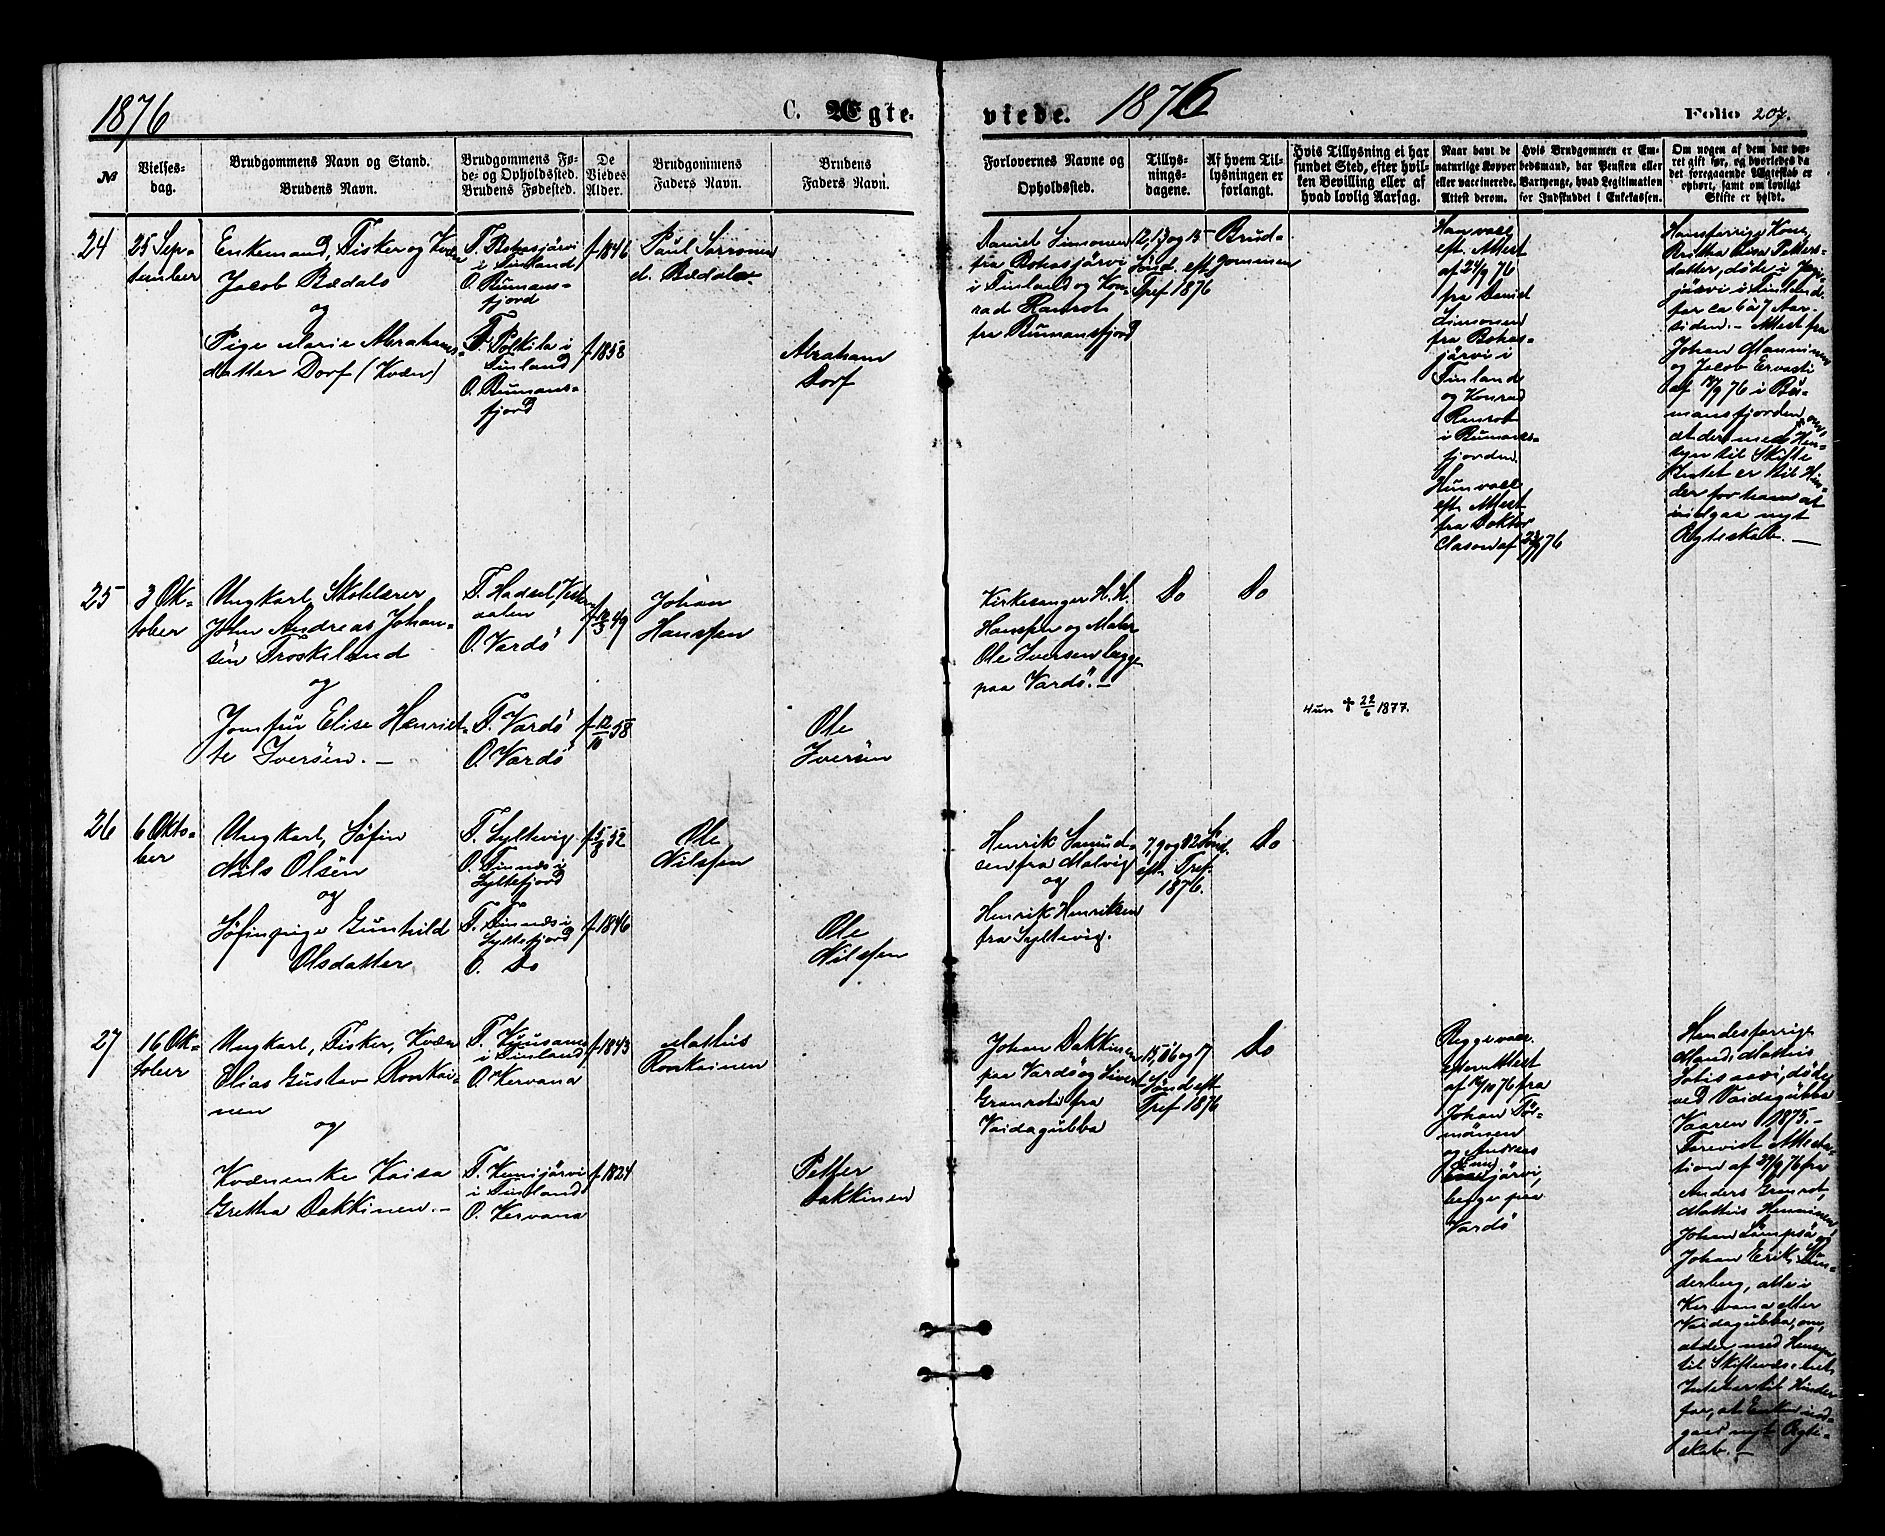 1876
C. Ægte-
viede.
1876
Folio 207.
№
Vielses-
dag.
Brudgommens Navn og Stand.
Brudens Navn.
Brudgommens Fø-
de- og Opholdssted.
Brudens Fødested.
De
Viedes
Alder.
Brudgommens
Faders Navn.
Brudens
Faders Navn.
Forlovernes Navne og
Opholdssted.
Tillys-
nings-
dagene.
Af hvem Til-
lysningen er
forlangt.
Hvis Tillysning ei har
fundet Sted, efter hvil-
ken Bevilling eller af
hvad lovlig Aarsag.
Naar havt de
naturlige Kopper
eller vaccinerede.
Attest derom.
Hvis Brudgommen er Em-
bedsmand, har Pension eller
Vartpenge, hvad Legitimation
for Indskuddet i Enkekassen.
Om nogen af dem har væ-
ret gift før, og hvorledes da
det foregaaende Ægteskab er
ophørt, samt om lovligt
Skifte er holdt.
24
25 Sep-
tember
Enkemand, Fisker og Kvæn
Jacob Bædalo
og
Pige Marie Abrahams-
datter Dorf (Kvæn)
F. Bohasjärvi
i Finland
O. Bumans-
fjord
F. Polkila i
Finland
O. Bumans-
fjord
f. 1846
f. 1858
Paul
d. Bædalo
Abraham
Dorf
Daniel Simonen
fra Bohasjärvi
i Finland og Kon-
rad Ranrob
fra Bumansfjord
12, 13 og 15
Sønd. eft
Tref 1876
Brud-
gommen
Han vacc.
eft. Attest
af 24/9 76
fra Daniel
Simonen
fra Bohas-
järvi i
Finland
og Konrad
Ranrob
i Bumans-
fjorden.
Hun vacc.
eft. Attest
fra Doktor
Clason af 23/9 76
Hans forrige Kone,
Britha Lisa Petters-
datter, døde i
järvi i Finland
for ca 6 à 7 Aar
siden. - Attest fra
Johan Manninen
og Jacob Ervasti
af 17/9 76 i Bu-
mansfjorden, om,
at der med Hen-
syn til Skifte
Intet er til Hin-
der for ham at
indgaa nyt
Ægteskab. -
25
3 Ok-
tober
Ungkarl, Skolelærer
John Andreas Johan-
sen Froskeland
og
Jomfru Elise Henriet-
te Iversen. -
F. Hadsel, Vester-
aalen
O. Vardö
F. Vardö
O. Vardö
f 12/3 49
f 12/10 58
Johan
Hanssen
Ole
Iversen
Kirkesanger H. H.
Hanssen og Maler
Ole Iversen begge
paa Vardö. -
Do
Do
Hun † 22/6 1877.
26
6 Okto-
ber
Ungkarl, Søfin
Nils Olsen
og
Søfinpige Gunhild
Olsdatter
F. Syltevig
O. Finnæs i
Syltefjord
F. Finnæs i
Syltefjord
O. Do
f 5/8 52
f. 1846
Ole
Nilssen
Ole
Nilssen
Henrik Samuel-
sen fra Makvig
og
Henrik Henriksen
fra Syltevig.
7, 9 og 12 Sönd.
eft. Tref.
1876.
Do
27
16 Ok-
tober
Ungkarl, Fisker, Kvæn
Elias Gustav Ronkai-
nen
og
Kvænenke Kaisa
Gretha Dakkinen. -
F. Kuusamo
i Finland
O. Kervana
F. Kemijärvi
i Finland
O. Kervana
f. 1843
f. 1824
Mathis
Ronkainen
Petter
Dakkinen
Johan Dakkinen
paa Vardö og Sivert
Granroti fra
Vaidagubba
15, 16 og 17
Sønd eft
Tref 1876
Do
Begge vacc.
efter Attest
af 12/10 76 fra
Johan
og Andreas
järvi,
begge paa
Vardö
Hendes forrige
Mand, Mathis
døde
ved Vaidagubba
Vaaren 1875. -
Forevist Attesta-
tion af 29/9 76 fra
Anders Granrot,
Mathis Henninen,
Johan Lämpsä og
Johan Erik Sun-
derberg, alle i
Kervana eller
Vaidagubba, om,
at der med Hensyn
til Skiftevæsenet
Intet er til Hinder
for, at Enken ind-
gaar nyt Ægte-
skab. -